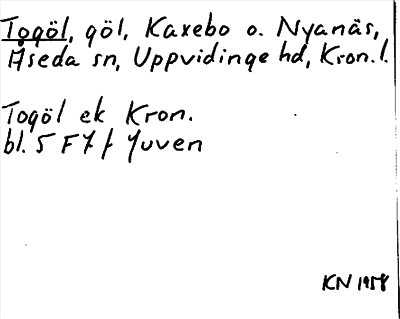 Togöl, göl, Kaxebo o. Nyanäs,
Åseda sn, Uppvidinge hd, Kron. l.
Togöl ek Kron.
bl. 5 F 7 f Juven
KN 1958